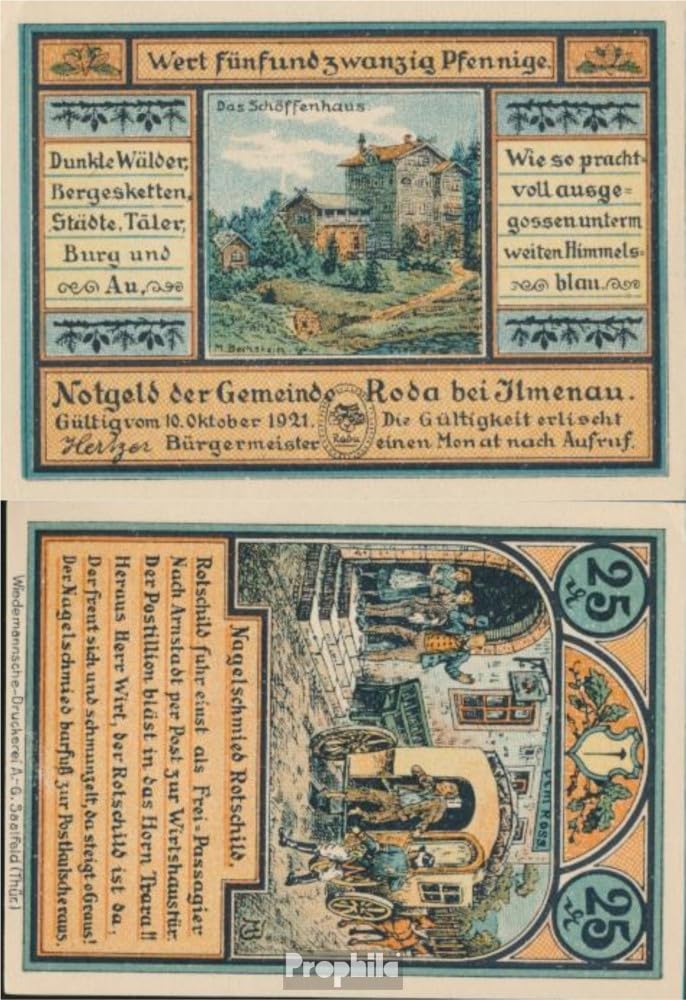 Wert fünfundzwanzig Pfennige.
Das Schöffenhaus
Dunkle Wälder,
Bergesketten,
Städte, Täler,
Burg und
Au,
Wie so pracht-
voll ausge=
gossen unterm
weiten Himmels=
blau.
M. Bernstein
Notgeld der Gemeinde Roda bei Ilmenau.
Gültig vom 10. Oktober 1921. Die Gültigkeit erlischt
Hertzer Bürgermeister einen Monat nach Aufruf.
Roda
25
Pf.
25
Pf.
ZUM ROSS
MB
Nagelschmied Rotschild.
Rotschild fuhr einst als Frei=Passagier
Nach Arnstadt per Post zur Wirtshaustür.
Der Postillion bläst in das Horn Trara!!
Heraus Herr Wirt, der Rotschild ist da,
Der freut sich und schmunzelt, da steigt o Graus!
Der Nagelschmied barfuß zur Postkutsche raus.
Wiedemannsche-Druckerei A.-G. Saalfeld (Thür.)
Prophila